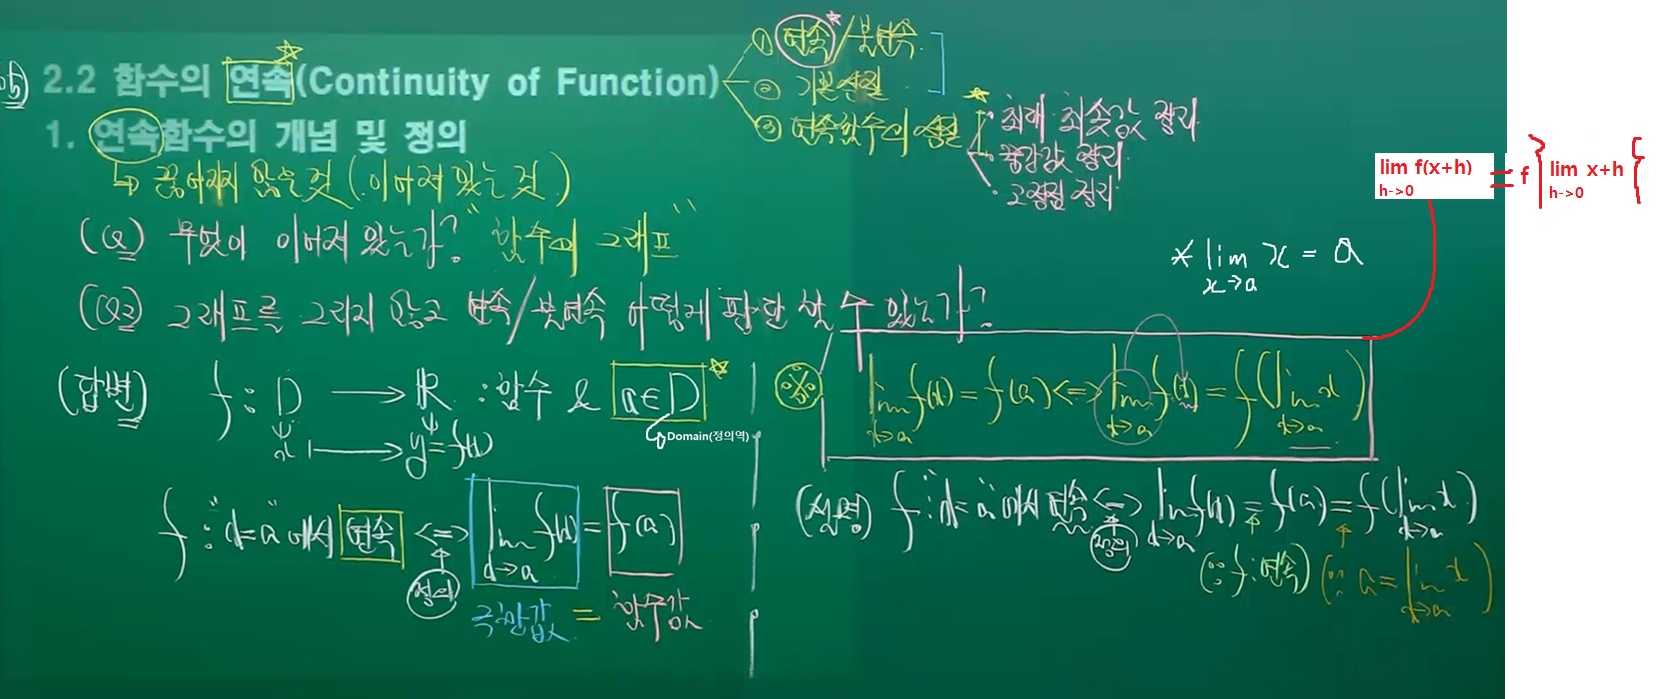 2.2 함수의 연속(Continuity of Function)
① 연속/불연속
② 기본성질
③ 연속함수의 성질
· 최대 최솟값 정리
· 중간값 정리
· 고정점 정리
1. 연속함수의 개념 및 정의
↳ 끊어지지 않은 것 (이어져 있는 것)
(Q) 무엇이 이어져 있는가? "함수의 그래프"
(Q2) 그래프를 그리지 않고 연속/불연속 어떻게 판단 할 수 있는가?
(답변) f : D → ℝ : 함수 & a∈D
Domain(정의역)
x ↦ y=f(x)
f : "x=a"에서 연속 <=> lim f(x) = f(a)
x→a
정의
극한값 = 함수값
lim f(x+h) = f { lim x+h }
h->0 h->0
* lim x = a
x→a
lim f(x) = f(a) <=> lim f(x) = f(lim x)
x→a x→a x→a
(설명) f : "x=a"에서 연속 <=> lim f(x) = f(a) = f(lim x)
정의 x→a x→a
(∵ f : 연속) (∵ a = lim x)
x→a